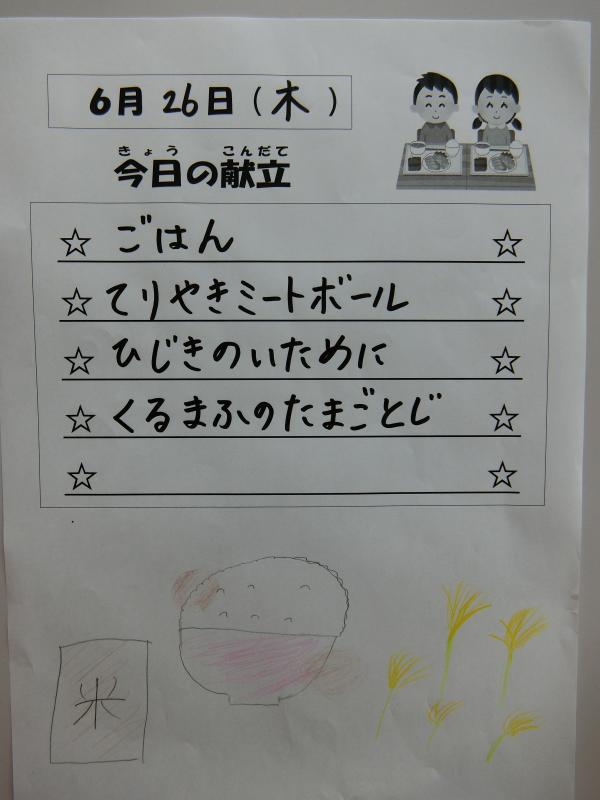 6月26日(木)
きょう こんだて
今日の献立
☆ ごはん ☆
☆ てりやきミートボール ☆
☆ ひじきのいために ☆
☆ くるまふのたまごとじ ☆
☆ ☆
米